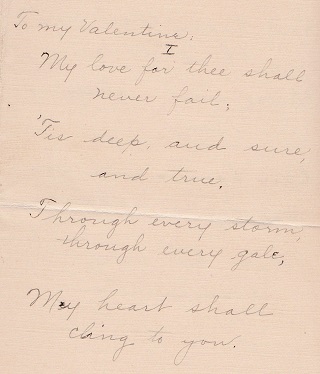 To my Valentine:
I
My love for thee shall
never fail;
'Tis deep, and sure,
and true.
Through every storm,
through every gale,
My heart shall
cling to you.